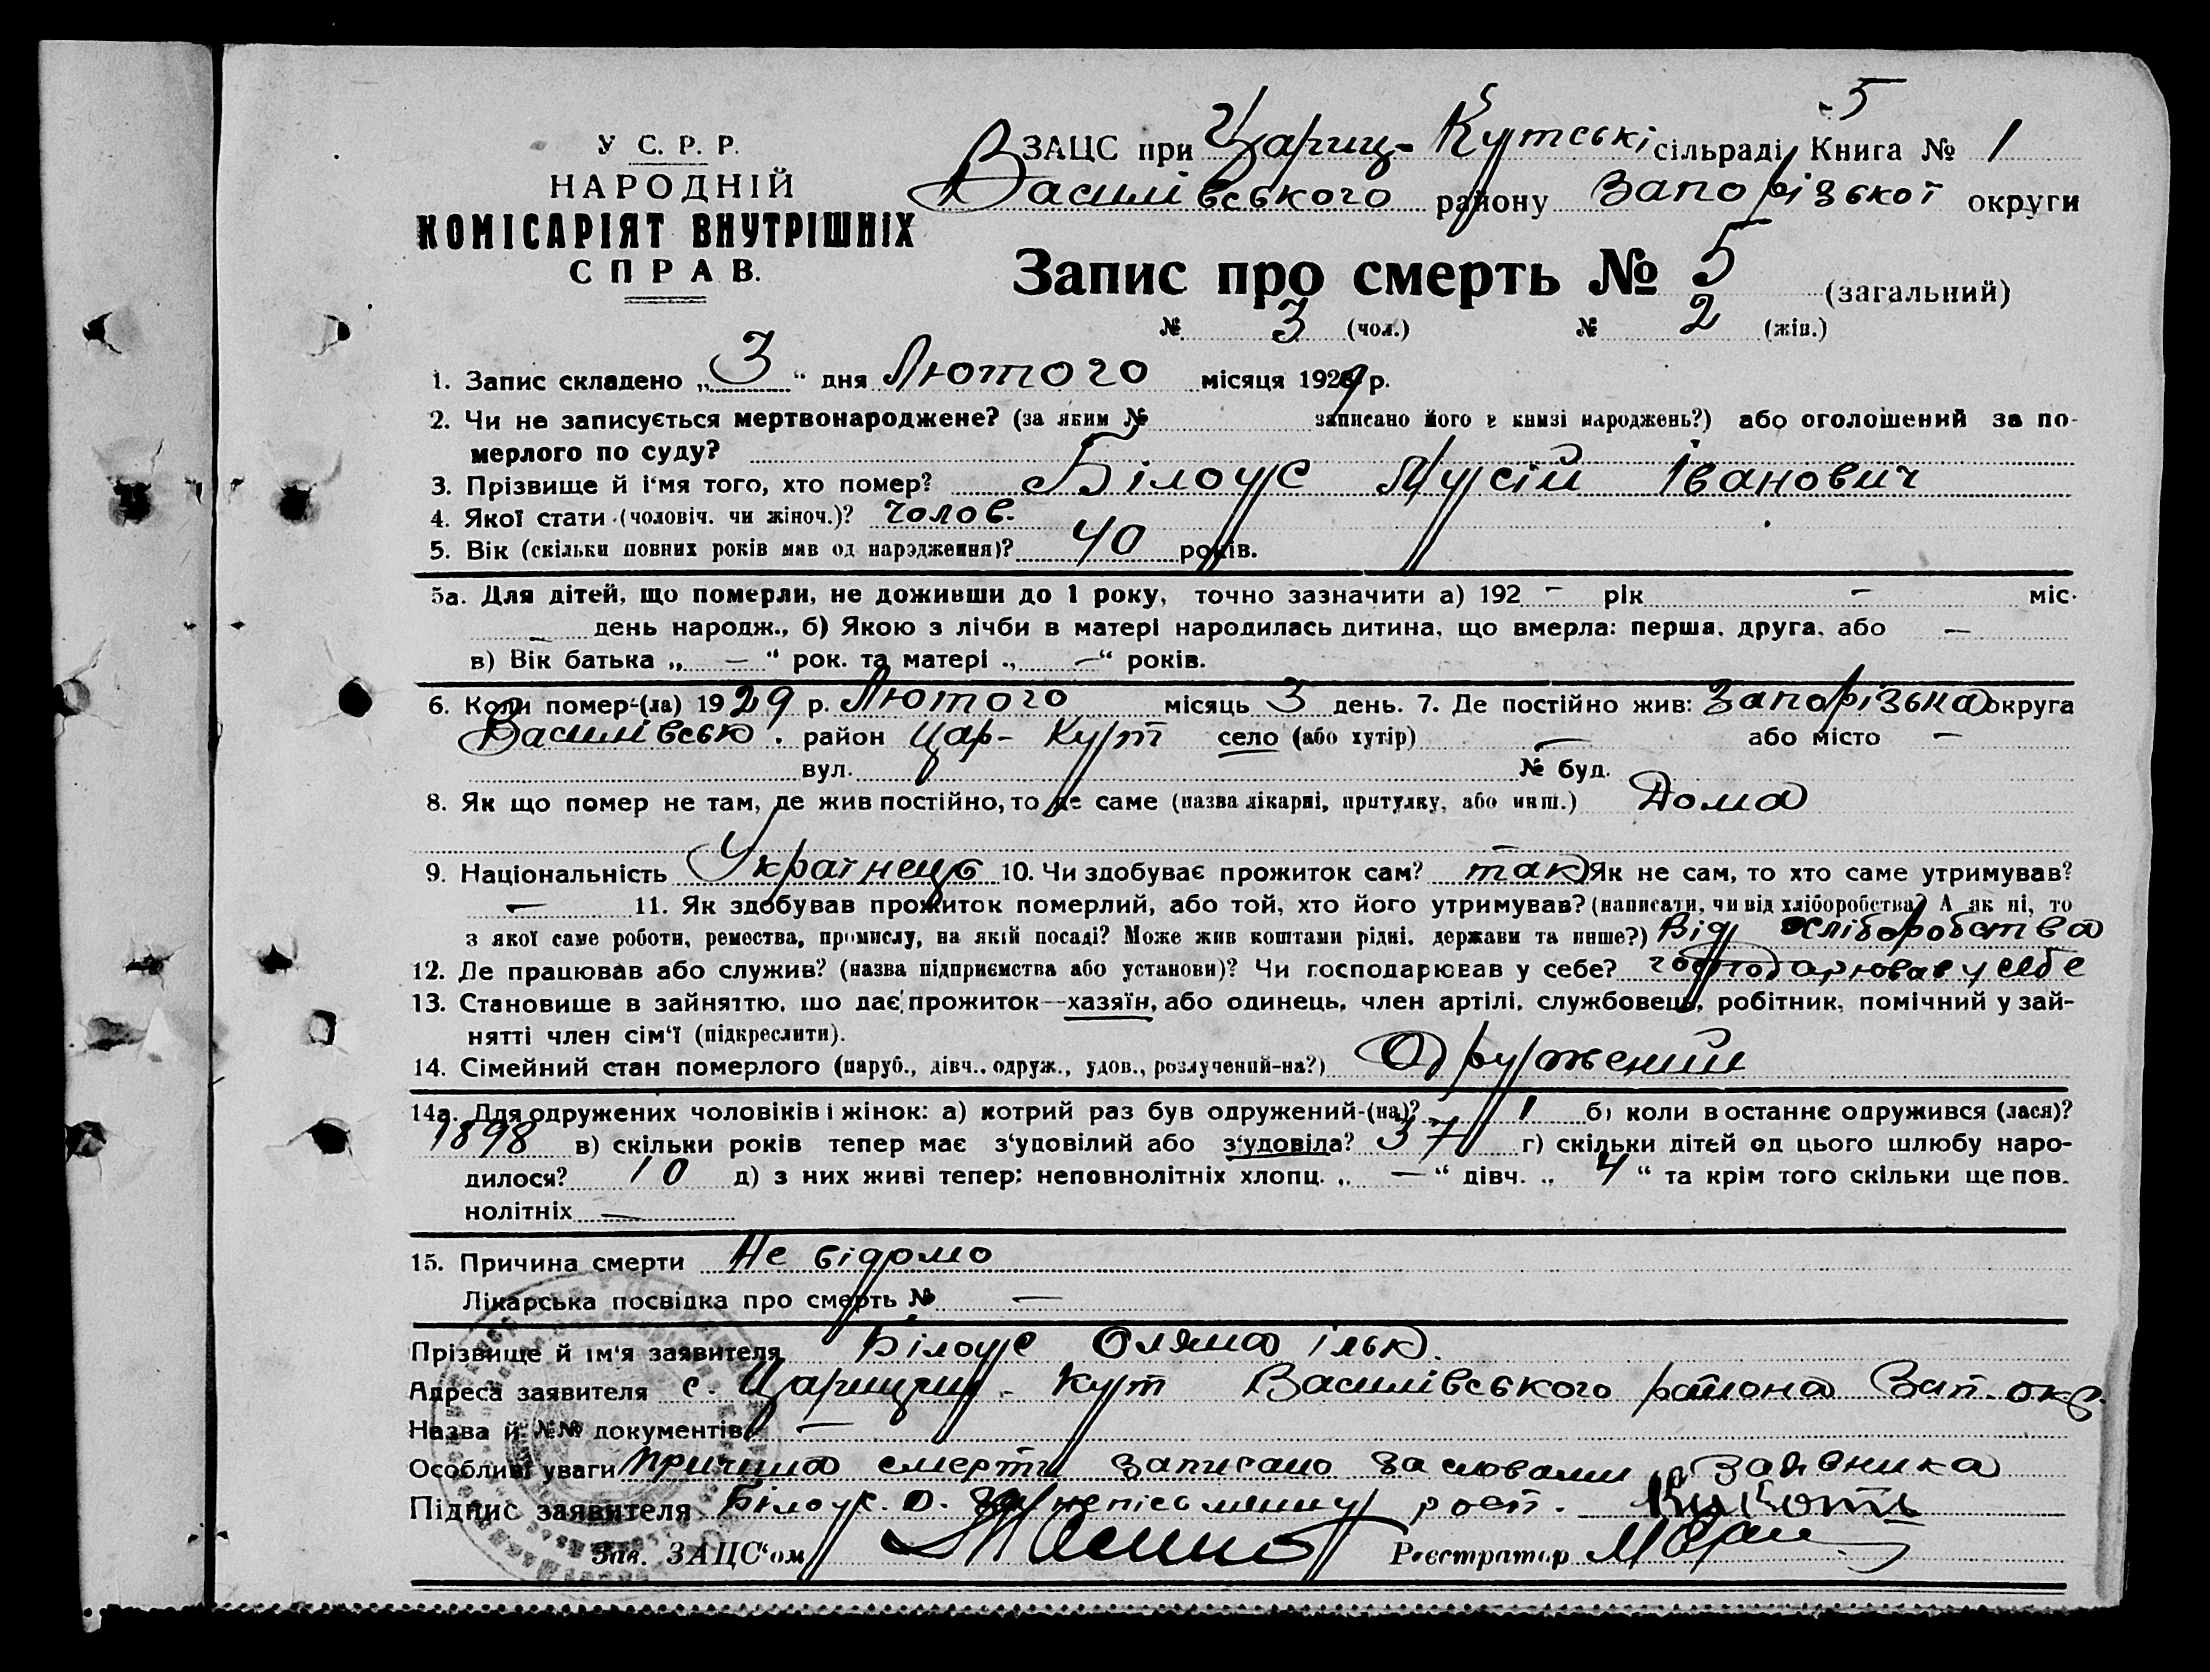 5
У С. Р. Р.
НАРОДНІЙ
КОМІСАРІЯТ ВНУТРІШНІХ
СПРАВ.
ЗАЦС при Цариц-Кутські сільраді, Книга № 1
Василівського району Запорізької округи
Запис про смерть № 5 (загальний)
№ 3 (чол.) № 2 (жін.)
1. Запис складено „ 3 “ дня Лютого місяця 1929 р.
2. Чи не записується мертвонароджене? (за яким № записано його в книзі народжень?) або оголошений за по-
мерлого по суду?
3. Прізвище й і‘мя того, хто помер? Білоус Мусій Іванович
4. Якої стати (чоловіч. чи жіноч.)? Чолов.
5. Вік (скільки повних років мав од народження)? 40 років.
5а. Для дітей, що померли, не доживши до 1 року, точно зазначити а) 192 – рік – міс.
– день народж., б) Якою з лічби в матері народилась дитина, що вмерла: перша, друга, або –
в) Вік батька „ – “ рок. та матері „ – “ років.
6. Коли помер-(ла) 1929 р. Лютого місяць 3 день. 7. Де постійно жив: Запорізька округа
Василівськ. район Цар-Кут село (або хутір) – або місто –
вул. № буд.
8. Як що помер не там, де жив постійно, то де саме (назва лікарні, притулку, або инш.) Дома
9. Національність Українець 10. Чи здобуває прожиток сам? так Як не сам, то хто саме утримував?
– 11. Як здобував прожиток померлий, або той, хто його утримував? (написати, чи від хліборобства? А як ні, то
з якої саме роботи, ремества, промислу, на якій посаді? Може жив коштами рідні, держави та инше?) Від хліборобства
12. Де працював або служив? (назва підприємства або установи)? Чи господарював у себе? господарював у себе
13. Становище в зайняттю, що дає прожиток—хазяїн, або одинець, член артілі, службовець, робітник, помічний у зай-
нятті член сім‘ї (підкреслити).
14. Сімейний стан померлого (паруб., дівч., одруж., удов., розлучений-на?) Одружений
14а. Для одружених чоловіків і жінок: а) котрий раз був одружений-(на)? 1 б) коли востаннє одружився (лася)?
1898 в) скільки років тепер має з‘удовілий або з‘удовіла? 37 г) скільки дітей од цього шлюбу наро-
дилося? 10 д) з них живі тепер: неповнолітніх хлопц. „ – “ дівч. „ 4 “ та крім того скільки ще пов.
нолітніх –
15. Причина смерти Не відомо
Лікарська посвідка про смерть № –
Прізвище й ім‘я заявителя Білоус Оляна Ільк.
Адреса заявителя с. Царицин-Кут Василівського района Зап. окр.
Назва й №№ документів –
Особливі уваги Причина смерти записано за словами заявника
Підпис заявителя Білоус. О. за непісьменну росп.
Зав. ЗАЦС‘ом Реєстратор